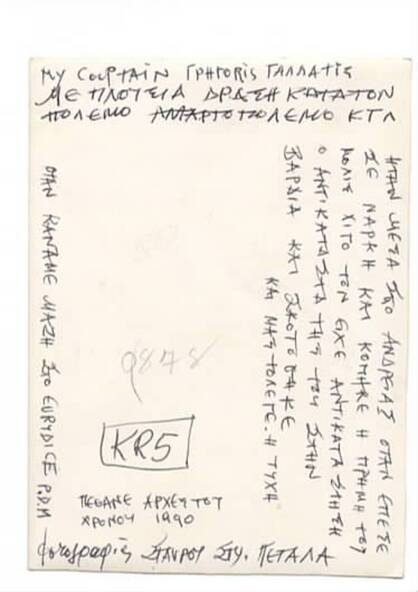 MY COUPTAIN ΓΡΗΓΟRIS ΓΑΛΛΑΤΙS
ΜΕ ΠΛΟΥΣΙΑ ΔΡΑΣΗ ΚΑΤΑ ΤΟΝ
ΠΟΛΕΜΟ ΚΤΛ
ΗΤΑΝ ΜΕΣΑ ΣΤΟ ΑΝΔΡΕΑΣ ΟΤΑΝ ΕΠΕΣΕ
ΣΕ ΝΑΡΚΗ ΚΑΙ ΚΟΠΗΚΕ Η ΠΡΥΜΗ ΤΟΥ
ΜΟΛΙΣ ΤΟΝ ΕΙΧΕ ΑΝΤΙΚΑΤΑΣΤΗΣΗ
Ο ΑΝΤΙΚΑΤΑΣΤΑΤΗΣ ΤΟΥ ΣΤΗΝ
ΒΑΡΔΙΑ ΚΑΙ ΣΚΟΤΟΘΗΚΕ
ΚΑΙ ΝΑΣ ΤΟ ΛΕΓΕ. Η ΤΥΧΗ
ΟΤΑΝ ΚΑΝΑΜΕ ΜΑΖΗ ΣΤΟ EURYDICE P.D.M
9878
KR5
ΠΕΘΑΝΕ ΑΡΧΕΣ ΤΟΥ
ΧΡΟΝΟΥ 1990
φωτογραφίες ΣΤΑΥΡΟΥ ΣΤΥ. ΠΕΤΑΛΑ